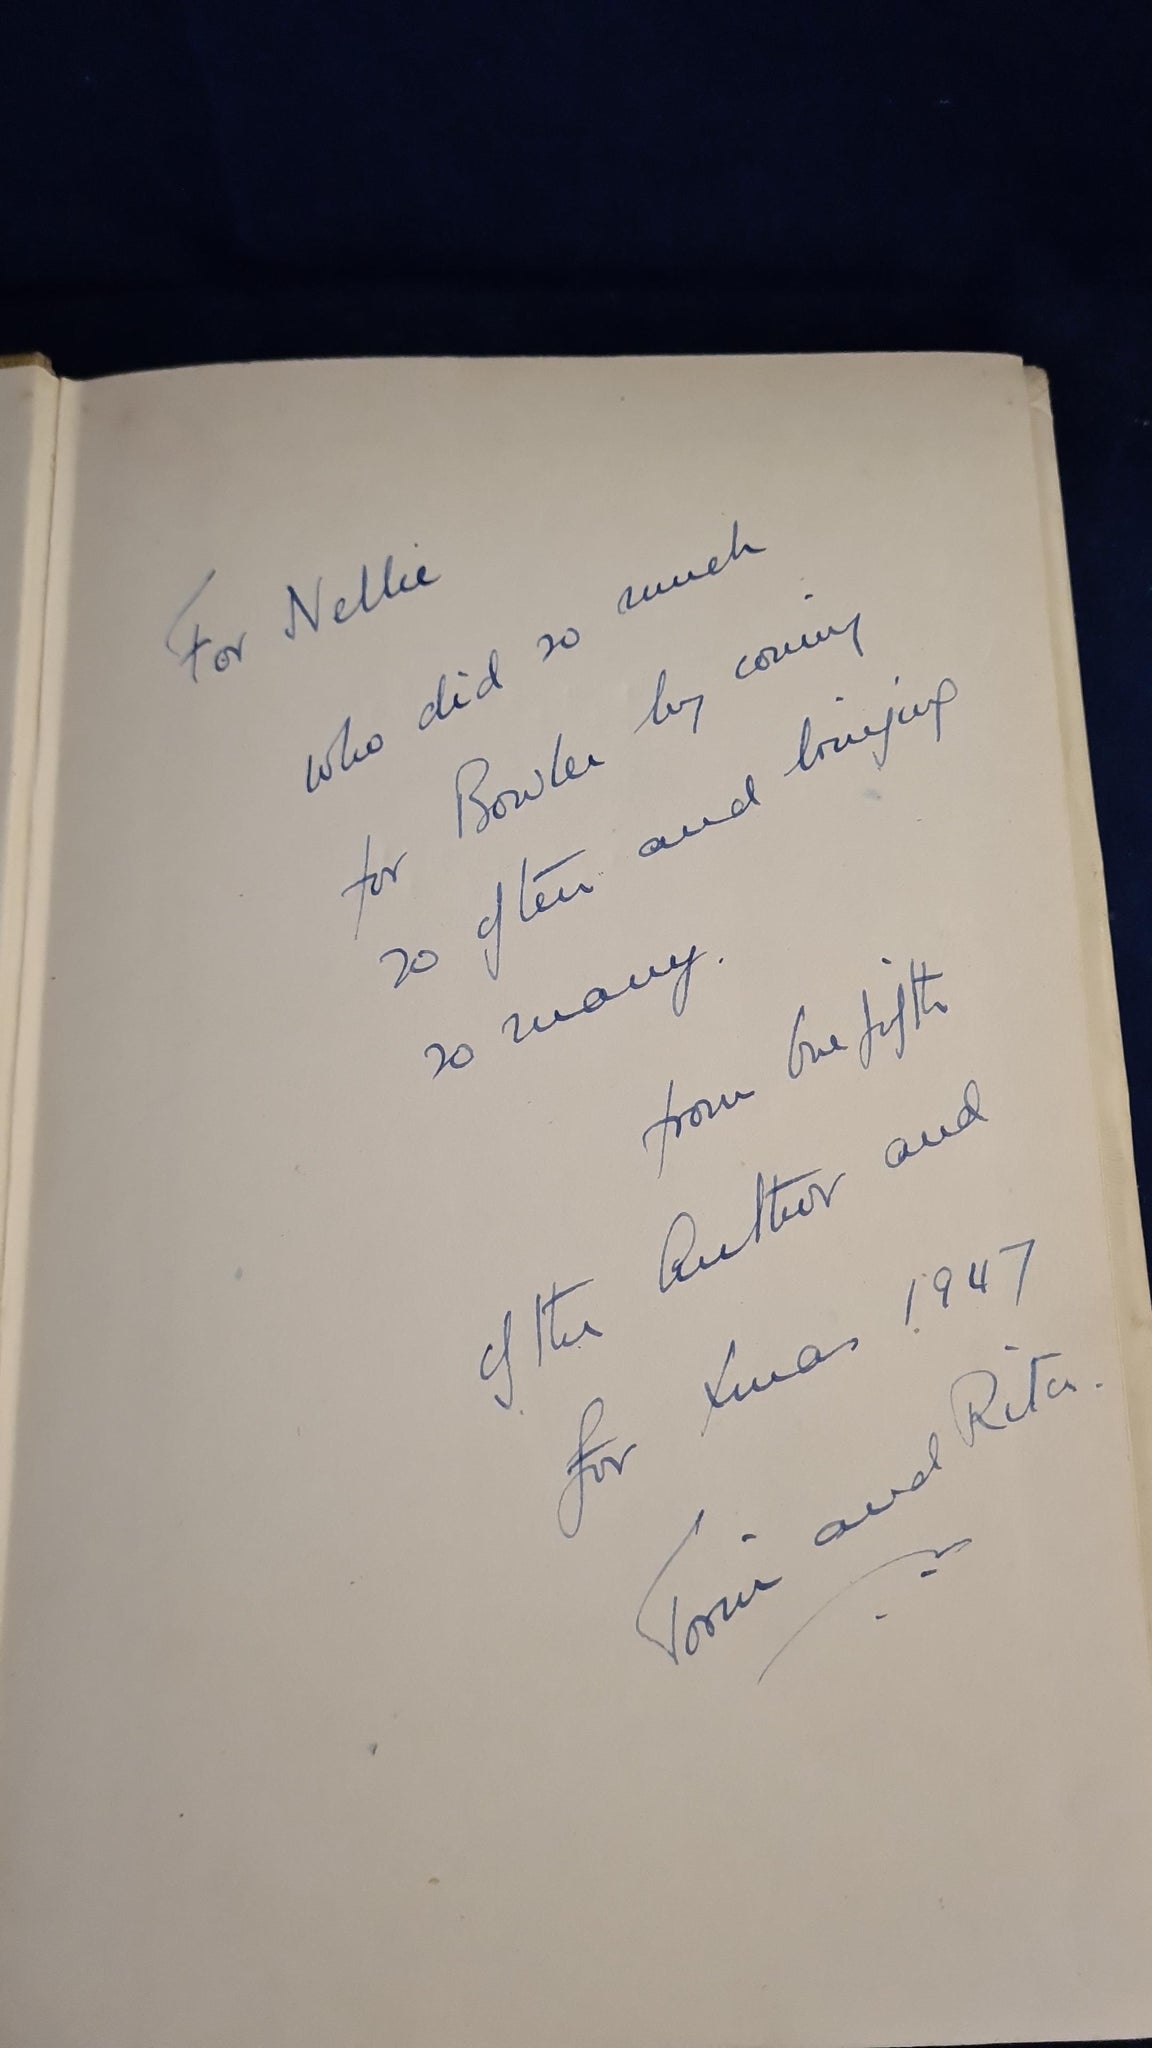 For Nellie
who did so much
for by coming
so often and bringing
so many.
from one fifth
of the Author and
for Xmas 1947
and Rita.